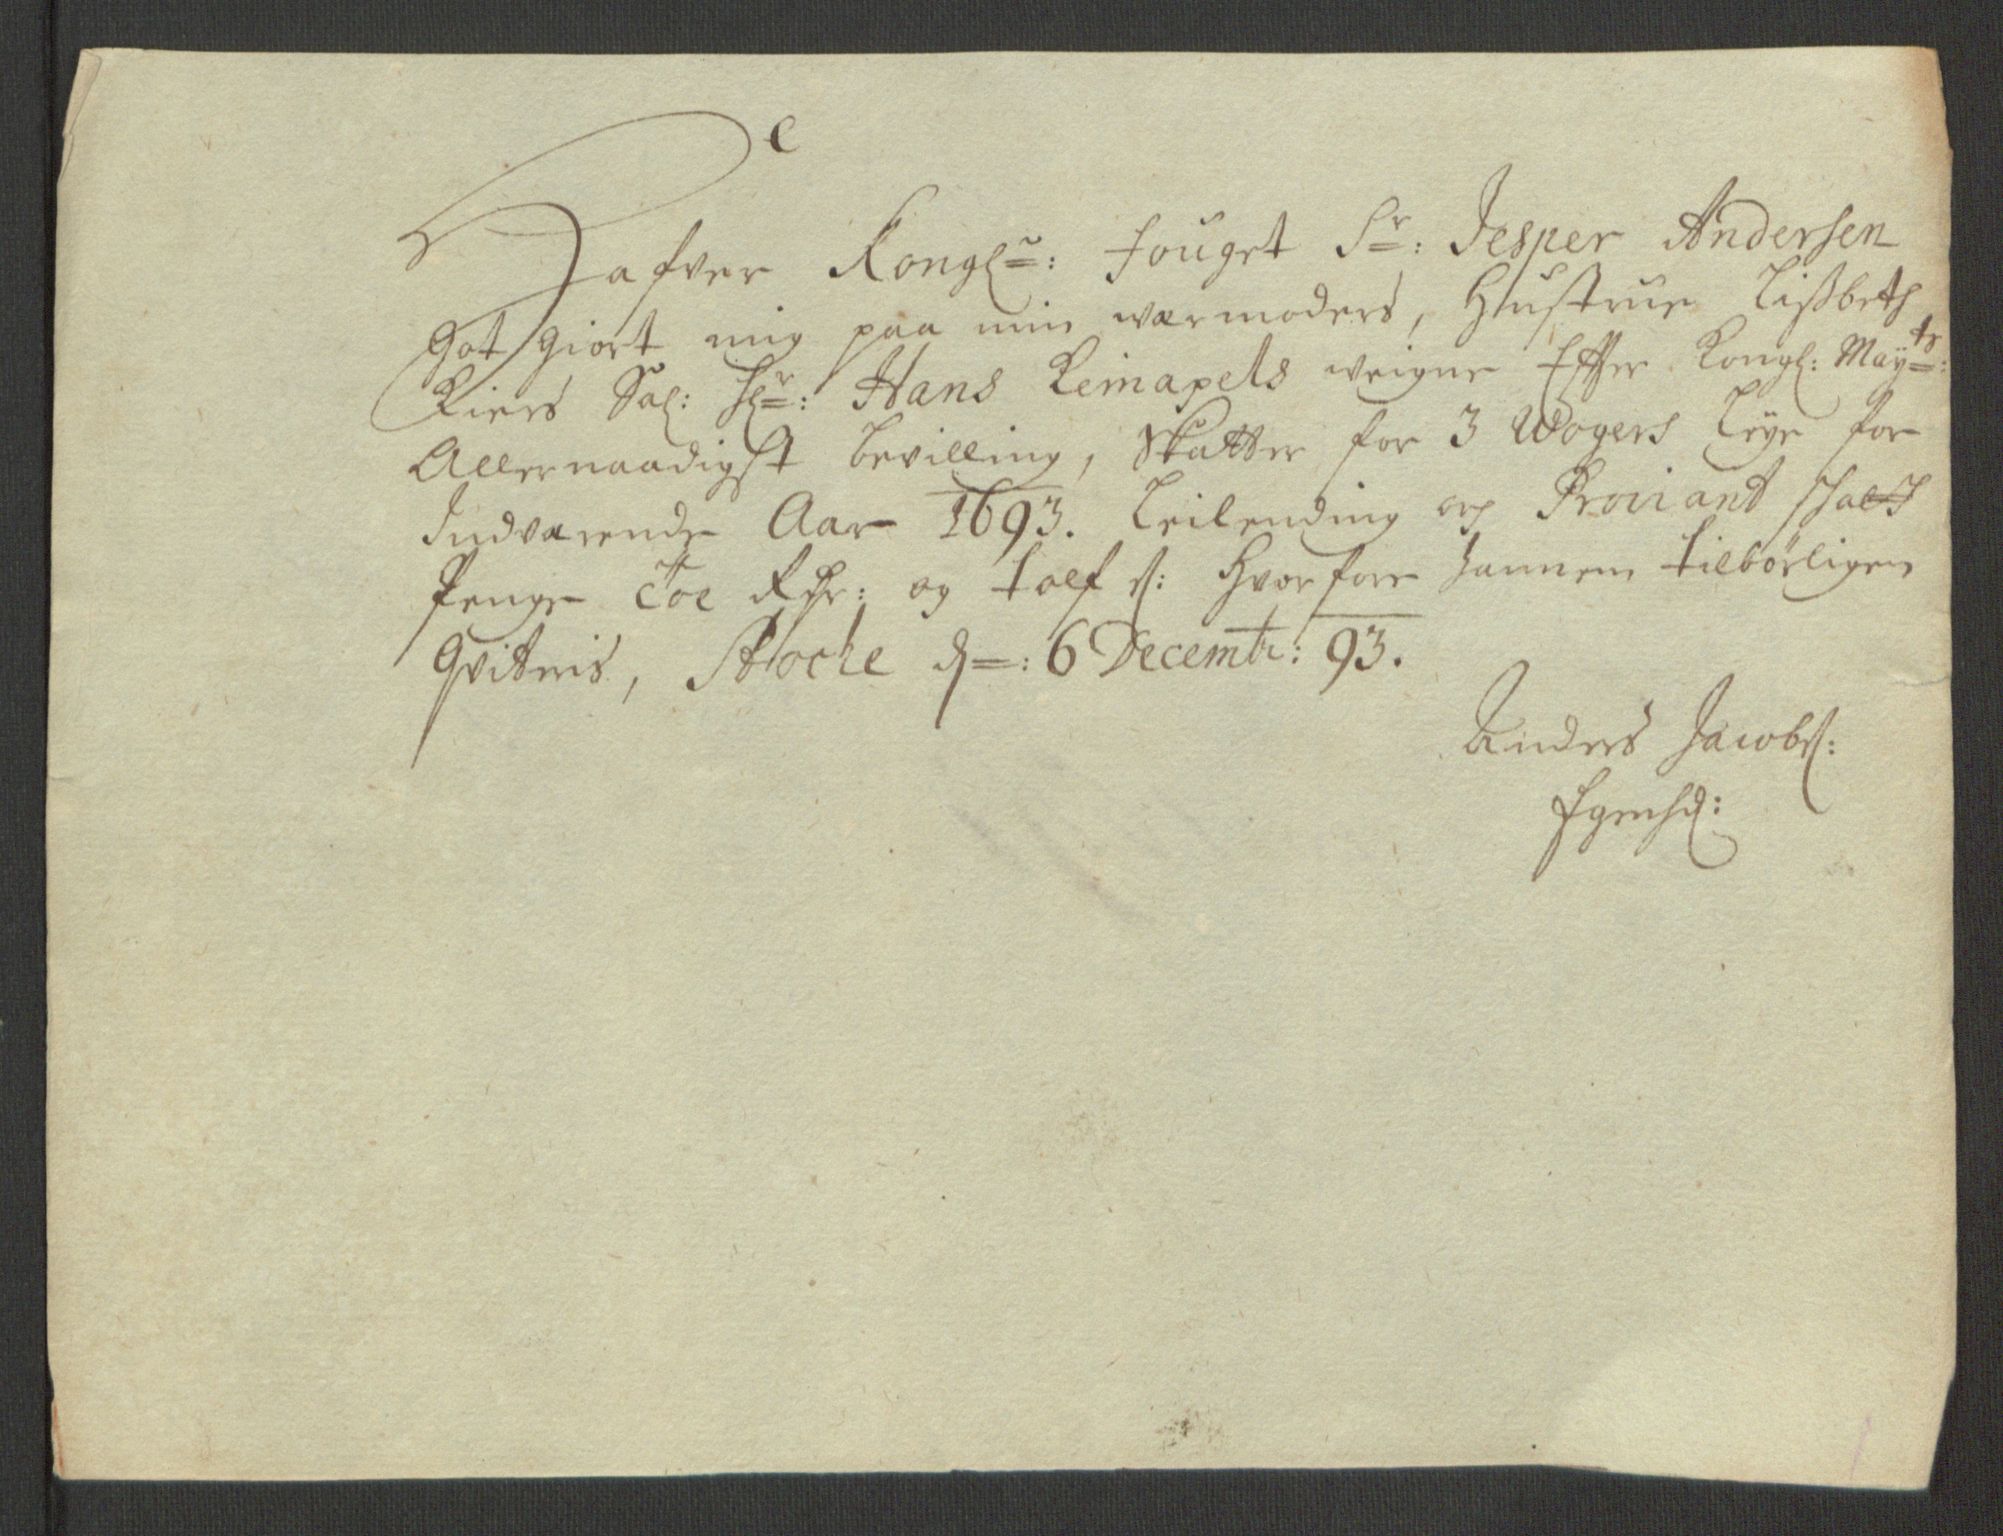 Hafver Kongl: fouget Sr: Jesper Andersen
Got giort mig paa minværmoders, Hustrue Lißbeth
Kiers Sal: Hr: Hans Reimapels weigne Effter Kongl: Mayts:
Allernaadigst bevilling, Skatter for 3 Wogers leye for
Indværende Aar 1693. Leilending og Proviant
Penge Toe Rdr: og tolf s: hvorfore hannem tilbørligen
Qviteris, Stocke d: 6 Decembr: 93.
Anders Jacobs:
Egenhd: